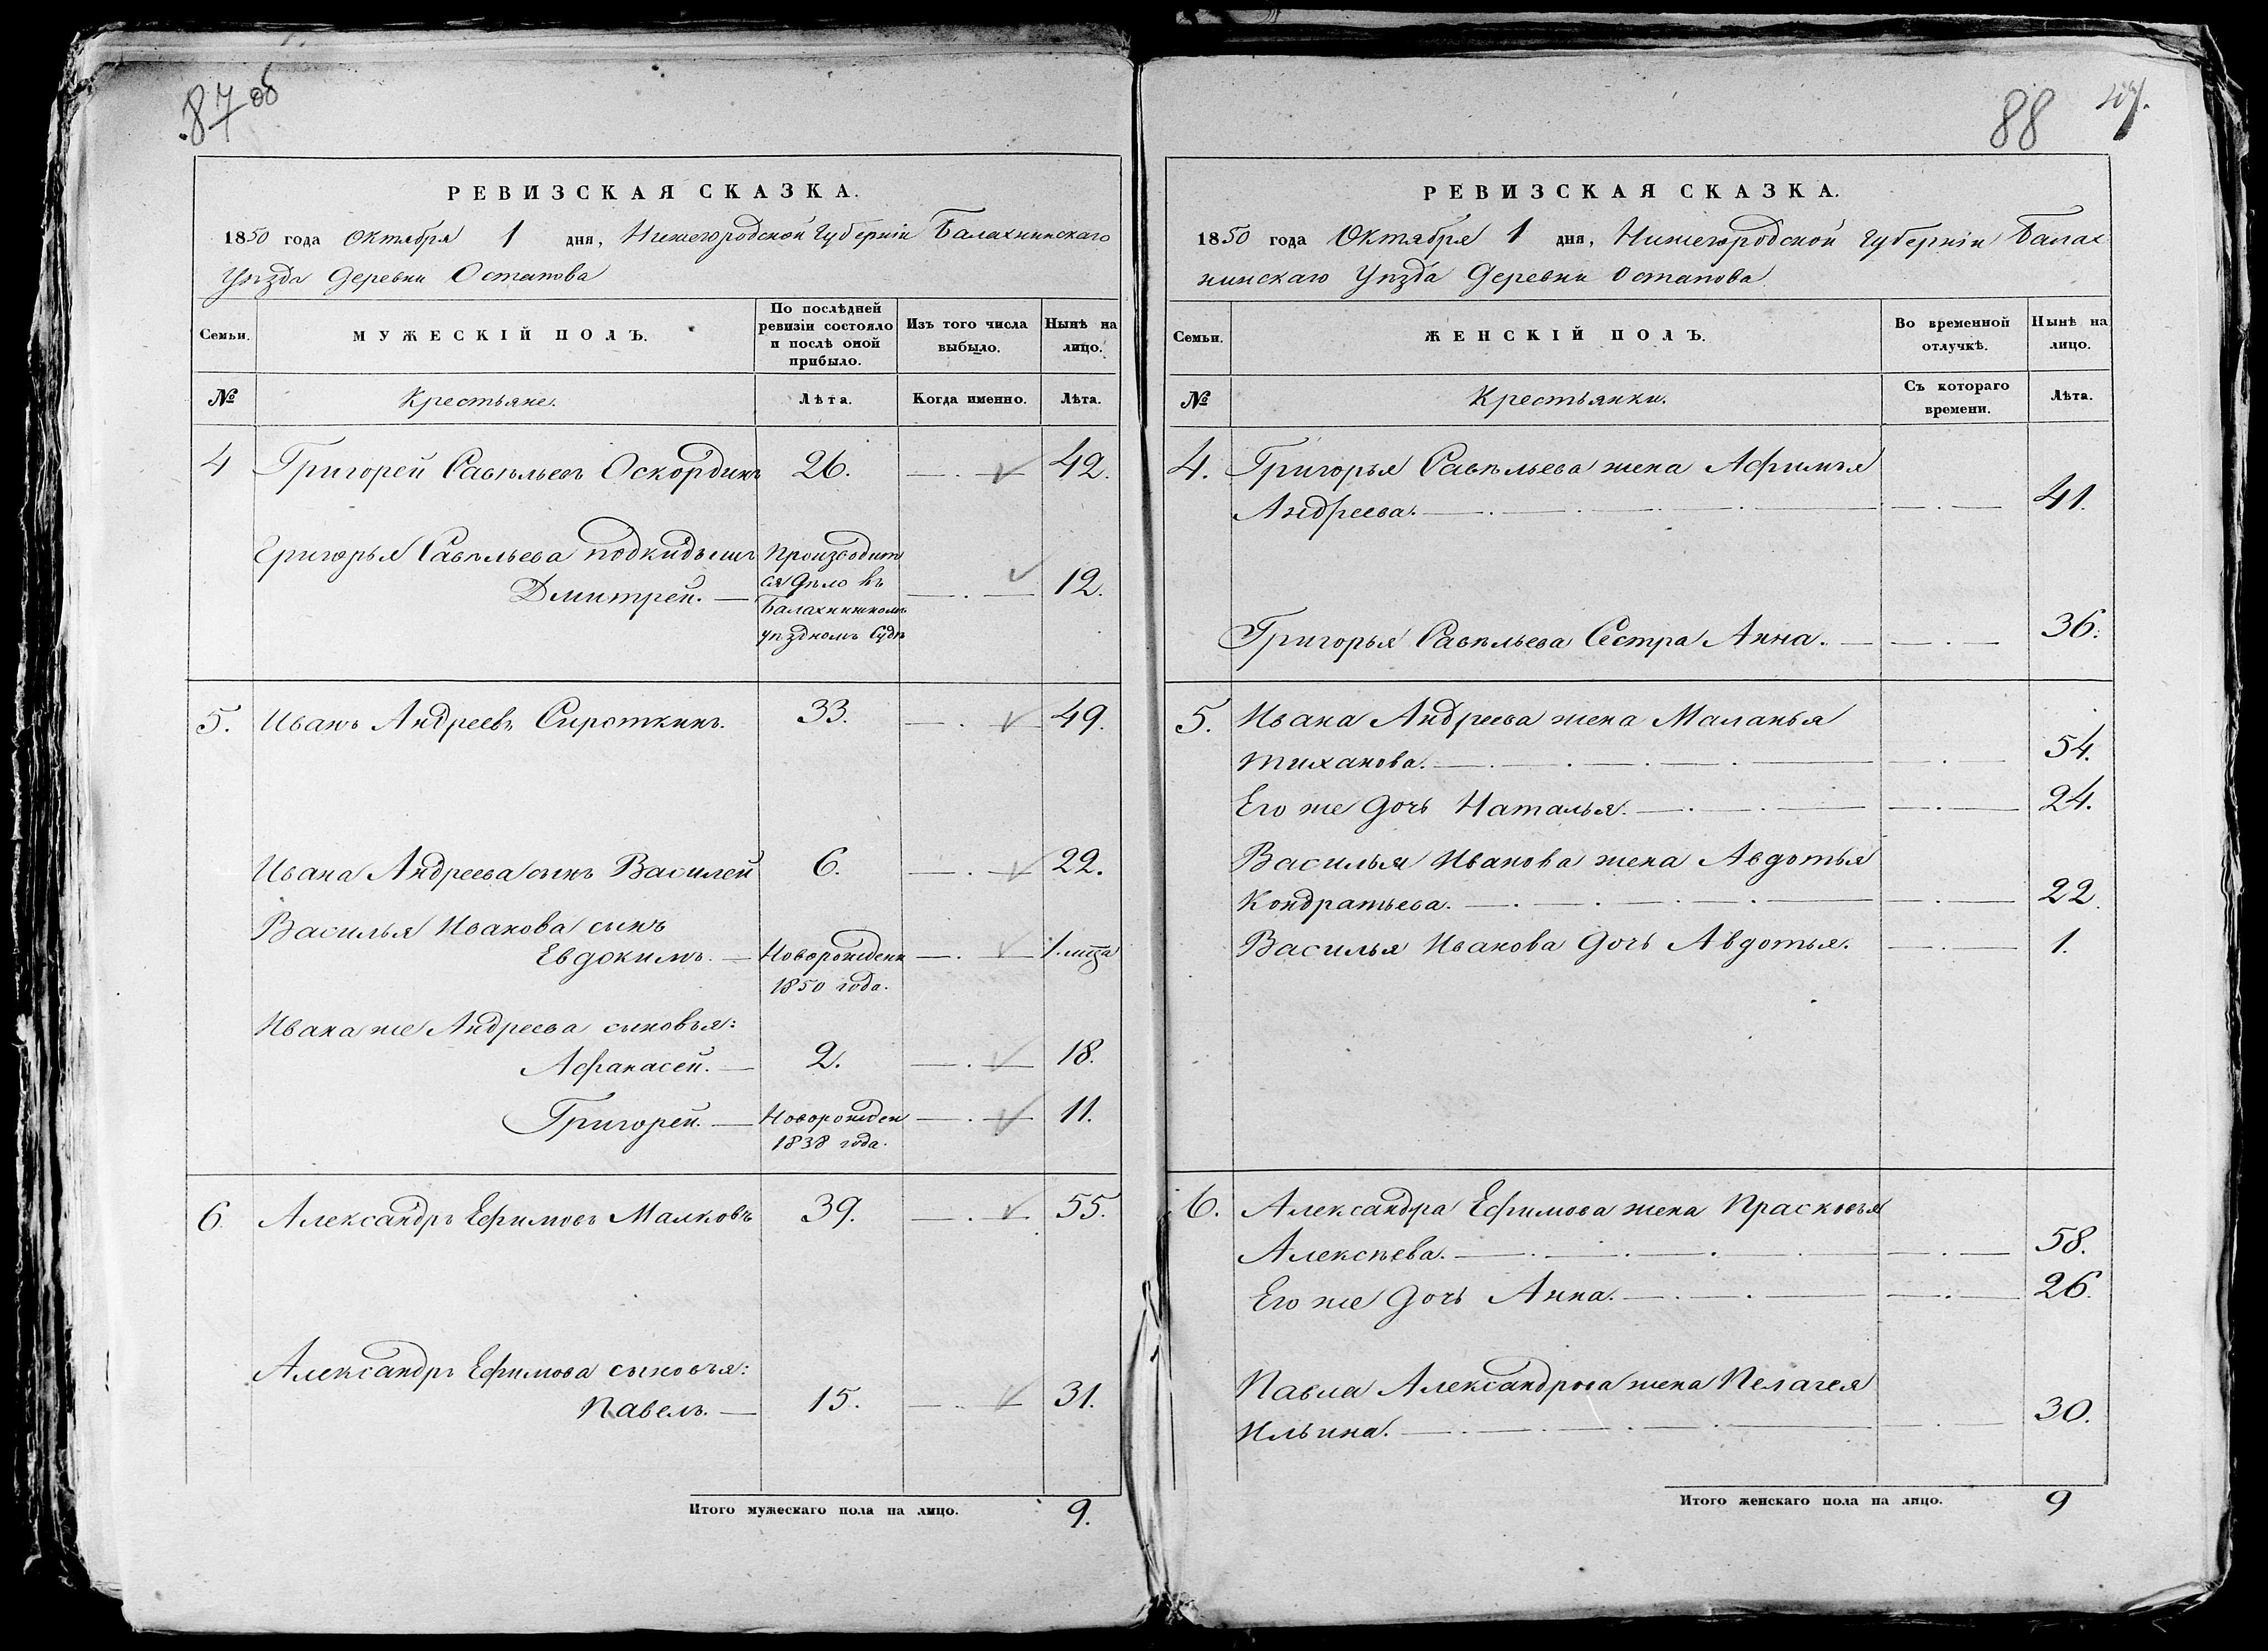 87 об
РЕВИЗСКАЯ СКАЗКА.
1850 года Октября 1 дня, Нижегородской Губерніи Балахнинскаго
Уѣзда Деревни Остапова
Семьи.
МУЖЕСКІЙ ПОЛЪ.
По послѣдней ревизіи состояло и послѣ оной прибыло.
Изъ того числа выбыло.
Нынѣ на лицо.
№ Крестьяне. Лѣта. Когда именно. Лѣта.
4 Григорей Савѣльевъ Оскордина 26. 42.
Григорья Савѣльева подкидышъ Производит
ся Дѣло въ
Дмитрей. 12.
Балахнинскомъ
уѣздномъ Судѣ
5. Иванъ Андреевъ Сироткинъ. 33. 49.
Ивана Андреева сынъ Василей 6. 22.
Василья Иванова сынъ
Евдокимъ. Новорожденъ 1.
1850 года.
Ивана же Андреева сыновья:
Афанасей. 2. 18.
Григорей. Новорожден 11.
1838 года.
6. Александръ Ефимовъ Малковъ 39. 55.
Александръ Ефимова сыновья:
Павелъ. 15. 31.
Итого мужескаго пола на лицо. 9.
88
РЕВИЗСКАЯ СКАЗКА.
1850 года Октября 1 дня, Нижегородской Губерніи Балах
нинскаго Уѣзда Деревни Остапова
Семьи.
ЖЕНСКІЙ ПОЛЪ.
Во временной отлучкѣ.
Нынѣ на лицо.
№ Крестьянки. Съ котораго времени. Лѣта.
4. Григорья Савѣльева жена Афимья
Андреева. 41.
Григорья Савѣльева Сестра Анна. 36.
5. Ивана Андреева жена Маланья
Тиханова. 54.
Его же Дочь Наталья. 24.
Василья Иванова жена Авдотья
Кондратьева. 22.
Василья Иванова Дочь Авдотья. 1.
6. Александра Ефимова жена Прасковья
Алексѣева. 58.
Его же Дочь Анна. 26.
Павла Александрова жена Пелагея
Ильина. 30.
Итого женскаго пола на лицо. 9